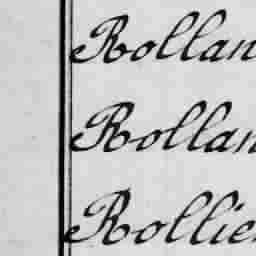 Rollan
Rollan
Rollie